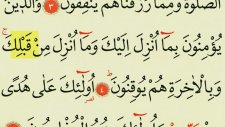 الصَّلَوٰةَ وَمِمَّا رَزَقْنَاهُمْ يُنْفِقُونَ ٣ وَالَّذِينَ
يُؤْمِنُونَ بِمَآ اُنْزِلَ اِلَيْكَ وَمَآ اُنْزِلَ مِنْ قَبْلِكَ ج
وَبِالْاٰخِرَةِ هُمْ يُوقِنُونَ ط ٤ اُولٰٓئِكَ عَلٰى هُدًى